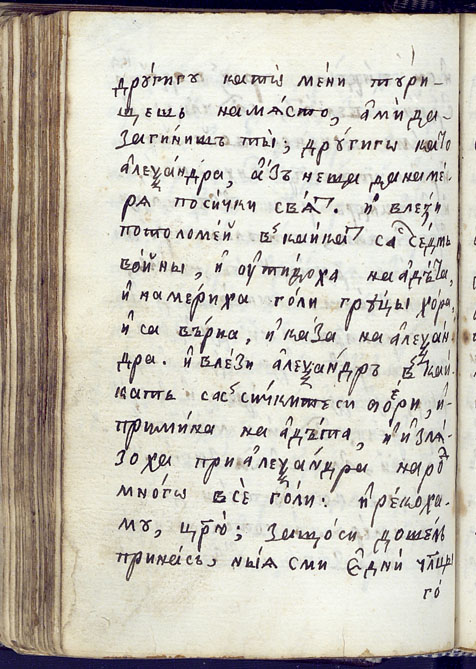 дрꙋ́гигꙋ катѡ̀ ме́ни тꙋри-
щешь намѧ́сто, а҆мѝ да-
загѝнишъ ты̀; дрꙋ́гигѡ като
а҆леѯа́ндра, а҆́зъ неща данаме-
рѧ посѝчки свѧ. и҆ влези
потоломе́й въ каикъ са се́дмь
во́йны, и҆ ѹ҆тидоха на адъта,
и҆ намериха го́ли грꙋцы хора,
и҆ са върна, и҆ каза на а҆леѯан
дра. и҆ влези а҆леѯа́ндръ въ каи-
катъ сасъ сѝчкитеси ѳо́ри, и҆-
примина на а҆дъта, и҆ и҆злѧ-
зоха при а҆леѯа́ндра народ
мно́гѡ всѐ го́ли. и҆ рекоха-
мꙋ, цр҃ю; защо́си дошелъ
принасъ, ныѧ сми є҆дни чл҃цы
го́